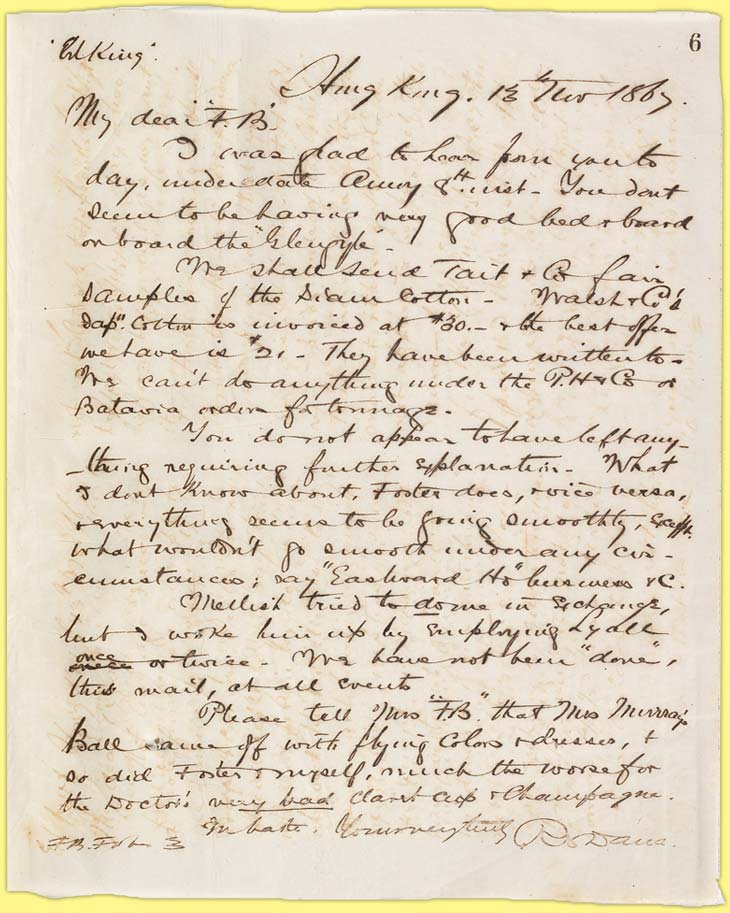 6
"Ed King".
Hong Kong. 13th Nov 1867.
My dear "F.B."
I was glad to hear from you to
day, under date Amoy 8th inst - You dont
seem to be having very good bed & board
on board the "Glengyle" -
We shall send Tait & Co fair
samples of the Siam Cotton - Walsh & Co's
Japn. Cotton is invoiced at $30. - & the best offer
we have is $21 - They have been written to -
We can't do anything under the P.H & Co or
Batavia orders for tonnage.
You do not appear to have left any-
-thing requiring further explanation - What
I dont know about, Foster does, & vice versa,
& everything seems to be going smoothly, except
what wouldn't go smooth under any cir-
cumstances; say "Eastward Ho" business &c.
Mellish tried to do me in Exchange,
but I woke him up by employing Lyall
once
or twice - We have not been "done",
this mail, at all events
Please tell Mrs "F.B." that Mrs Murray's
Ball came off with flying Colors & dresses, &
so did Foster & myself, much the worse for
the Doctor's very bad Claret Cup & Champagne.
In haste. Yours very truly
Dana.